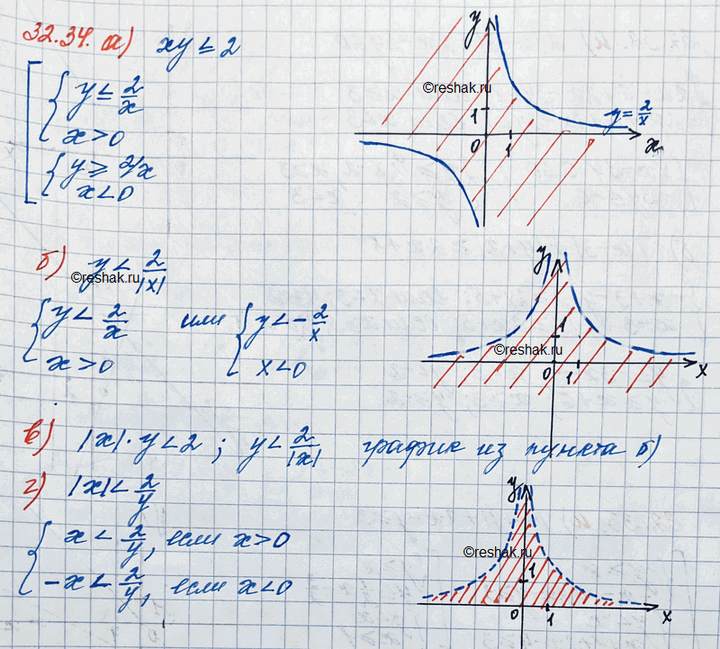 32.34. а) xy ≤ 2
y ≤ 2/x
x > 0
y ≥ 2/x
x < 0
y
©reshak.ru
1
y = 2/x
0 1 x
б) y < 2/|x|
©reshak.ru
y < 2/x или y < -2/x
x > 0 x < 0
y
1
©reshak.ru
0 1 x
в) |x|·y < 2 ; y < 2/|x| график из пункта б)
г) |x| < 2/y
x < 2/y, если x > 0
-x < 2/y, если x < 0
y
©reshak.ru
1
0 1 x